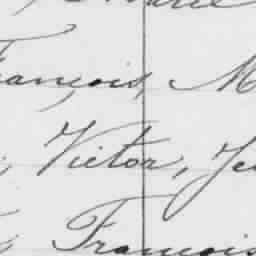 François, M
, Victor, Je
François